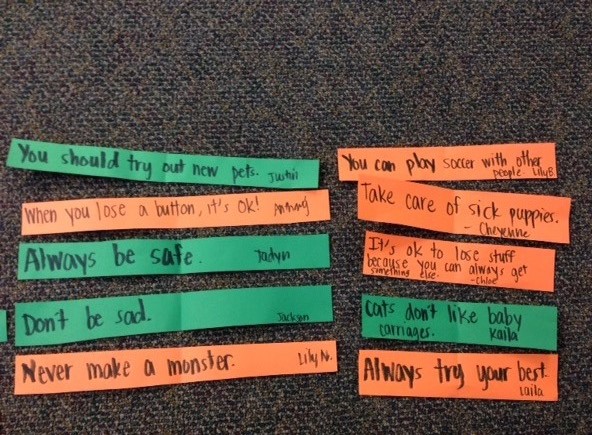 You should try out new pets. Justin
When you lose a button, it's OK! Anthony
Always be safe. Jadyn
Don't be sad. Jackson
Never make a monster. Lily N.
You can play soccer with other
people. Lily B.
Take care of sick puppies.
- Cheyenne
It's ok to lose stuff
because you can always get
something else. -Chloe
Cats don't like baby
carriages. Kaila
Always try your best.
Laila